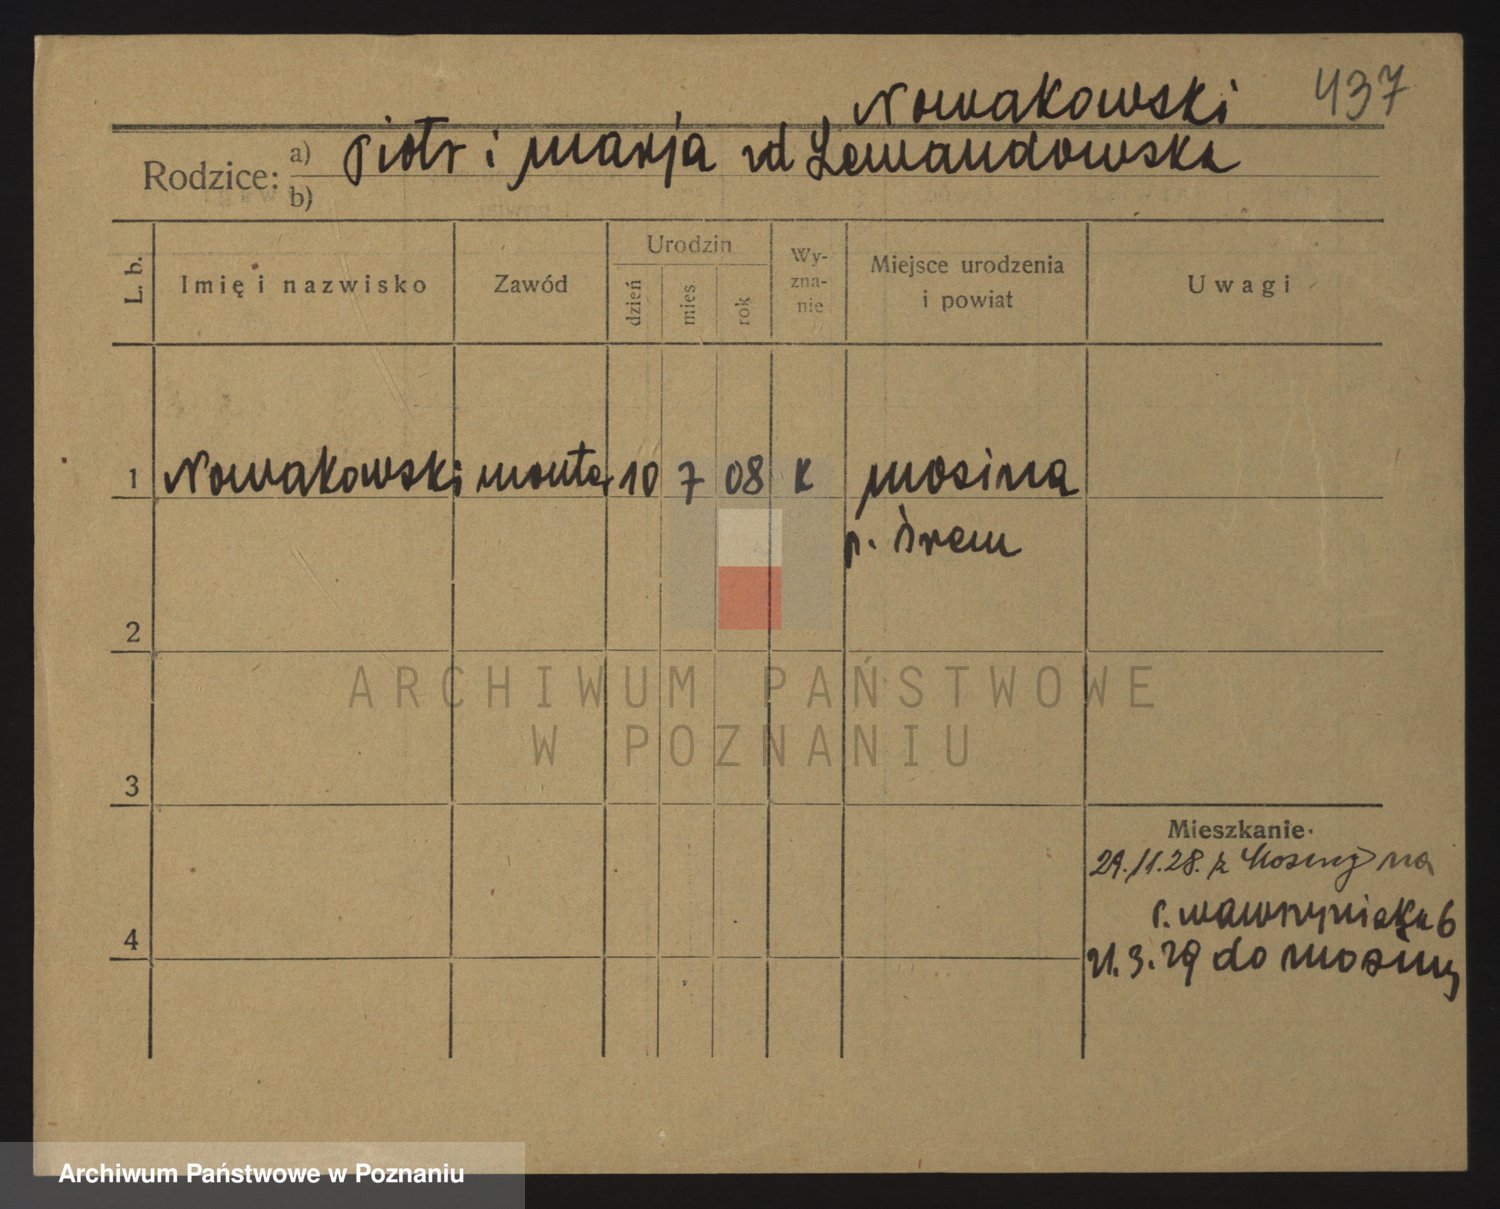 Nowakowski 437
Rodzice: a) Piotr i Marja zd Lewandowska
b)
L. b. Imię i nazwisko Zawód Urodzin dzień mies rok Wyznanie Miejsce urodzenia i powiat Uwagi
1 Nowakowski monter 10 7 08 K Mosina
p. Śrem
2
ARCHIWUM PAŃSTWOWE
W POZNANIU
3
Mieszkanie.
29./11.28. z Mosiny na
4
21.3.29 do Mosiny
Archiwum Państwowe w Poznaniu